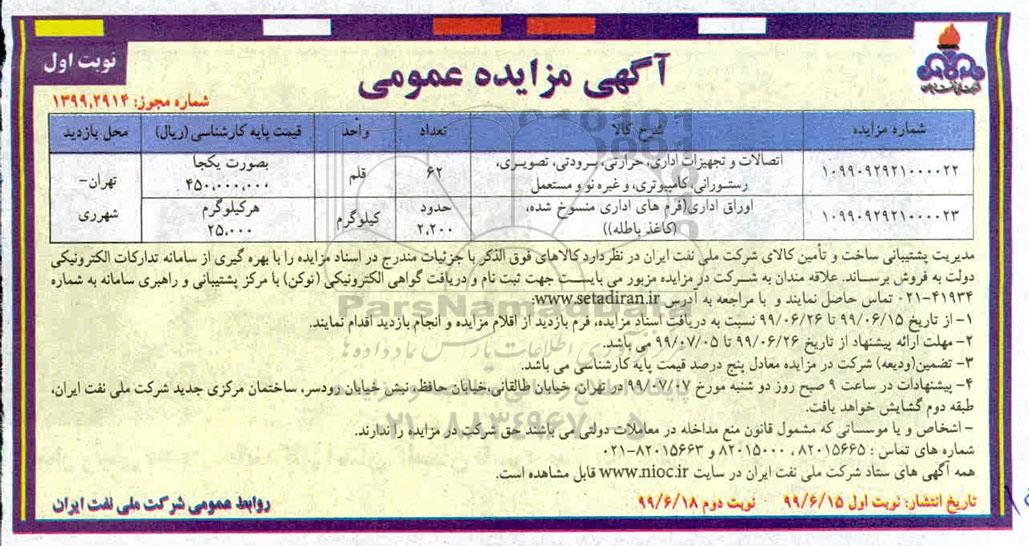 نوبت اول
آگهی مزایده عمومی
شماره مجوز: ۱۳۹۹,۲۹۱۴
شماره مزایده	شرح کالا	تعداد	واحد	قیمت پایه کارشناسی (ریال)	محل بازدید
۱۰۹۹۰۹۲۹۲۱۰۰۰۰۲۲	اتصالات و تجهیزات اداری، حرارتی، برودتی، تصویری،	۶۲	قلم	بصورت یکجا	تهران-
رستورانی، کامپیوتری، و غیره نو و مستعمل	۴۵۰,۰۰۰,۰۰۰	شهرری
۱۰۹۹۰۹۲۹۲۱۰۰۰۰۲۳	اوراق اداری(فرم های اداری منسوخ شده،	حدود	کیلوگرم	هرکیلوگرم
(کاغذ باطله))	۲,۲۰۰	۲۵,۰۰۰
مدیریت پشتیبانی ساخت و تأمین کالای شرکت ملی نفت ایران در نظر دارد کالاهای فوق الذکر با جزئیات مندرج در اسناد مزایده را با بهره گیری از سامانه تدارکات الکترونیکی
دولت به فروش برساند. علاقه مندان به شرکت در مزایده مزبور می بایست جهت ثبت نام و دریافت گواهی الکترونیکی (توکن) با مرکز پشتیبانی و راهبری سامانه به شماره
۰۲۱-۴۱۹۳۴ تماس حاصل نمایند و با مراجعه به آدرس www.setadiran.ir:
۱- از تاریخ ۹۹/۰۶/۱۵ تا ۹۹/۰۶/۲۶ نسبت به دریافت اسناد مزایده، فرم بازدید از اقلام مزایده و انجام بازدید اقدام نمایند.
۲- مهلت ارائه پیشنهاد از تاریخ ۹۹/۰۶/۲۶ تا ۹۹/۰۷/۰۵ می باشد.
۳- تضمین(ودیعه) شرکت در مزایده معادل پنج درصد قیمت پایه کارشناسی می باشد.
۴- پیشنهادات در ساعت ۹ صبح روز دو شنبه مورخ ۹۹/۰۷/۰۷ در تهران، خیابان طالقانی،خیابان حافظ، نبش خیابان رودسر، ساختمان مرکزی جدید شرکت ملی نفت ایران،
طبقه دوم گشایش خواهد یافت.
- اشخاص و یا موسساتی که مشمول قانون منع مداخله در معاملات دولتی می باشند حق شرکت در مزایده را ندارند.
شماره های تماس : ۸۲۰۱۵۶۶۵ ، ۸۲۰۱۵۰۰۰ و ۸۲۰۱۵۶۶۳-۰۲۱
همه آگهی های ستاد شرکت ملی نفت ایران در سایت www.nioc.ir قابل مشاهده است.
تاریخ انتشار: نوبت اول ۹۹/۶/۱۵ نوبت دوم ۹۹/۶/۱۸
روابط عمومی شرکت ملی نفت ایران